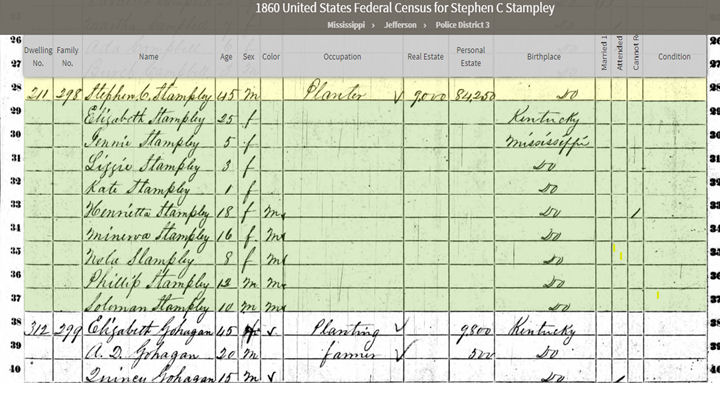 1860 United States Federal Census for Stephen C Stampley
Mississippi > Jefferson > Police District 3
26
Dwelling No. Family No. Name Age Sex Color Occupation Real Estate Personal Estate Birthplace Married Attended Cannot Condition
28 211 298 Stephen C. Stampley 45 m Planter 9,000 84,250 Do
29 Elizabeth Stampley 25 f Kentucky
30 Jennie Stampley 5 f Mississippi
31 Lizzie Stampley 3 f Do
32 Kate Stampley 1 f Do
33 Henrietta Stampley 18 f m Do /
34 Minerva Stampley 16 f m Do
35 Nola Stampley 8 f m Do
36 Phillip Stampley 12 m m Do
37 Soloman Stampley 10 m m Do
38 312 299 Elizabeth Gohagan 45 Planting 9800 Kentucky
39 A. D. Gohagan 20 m farmer 500 Do
40 Quincy Gohagan 15 m Do